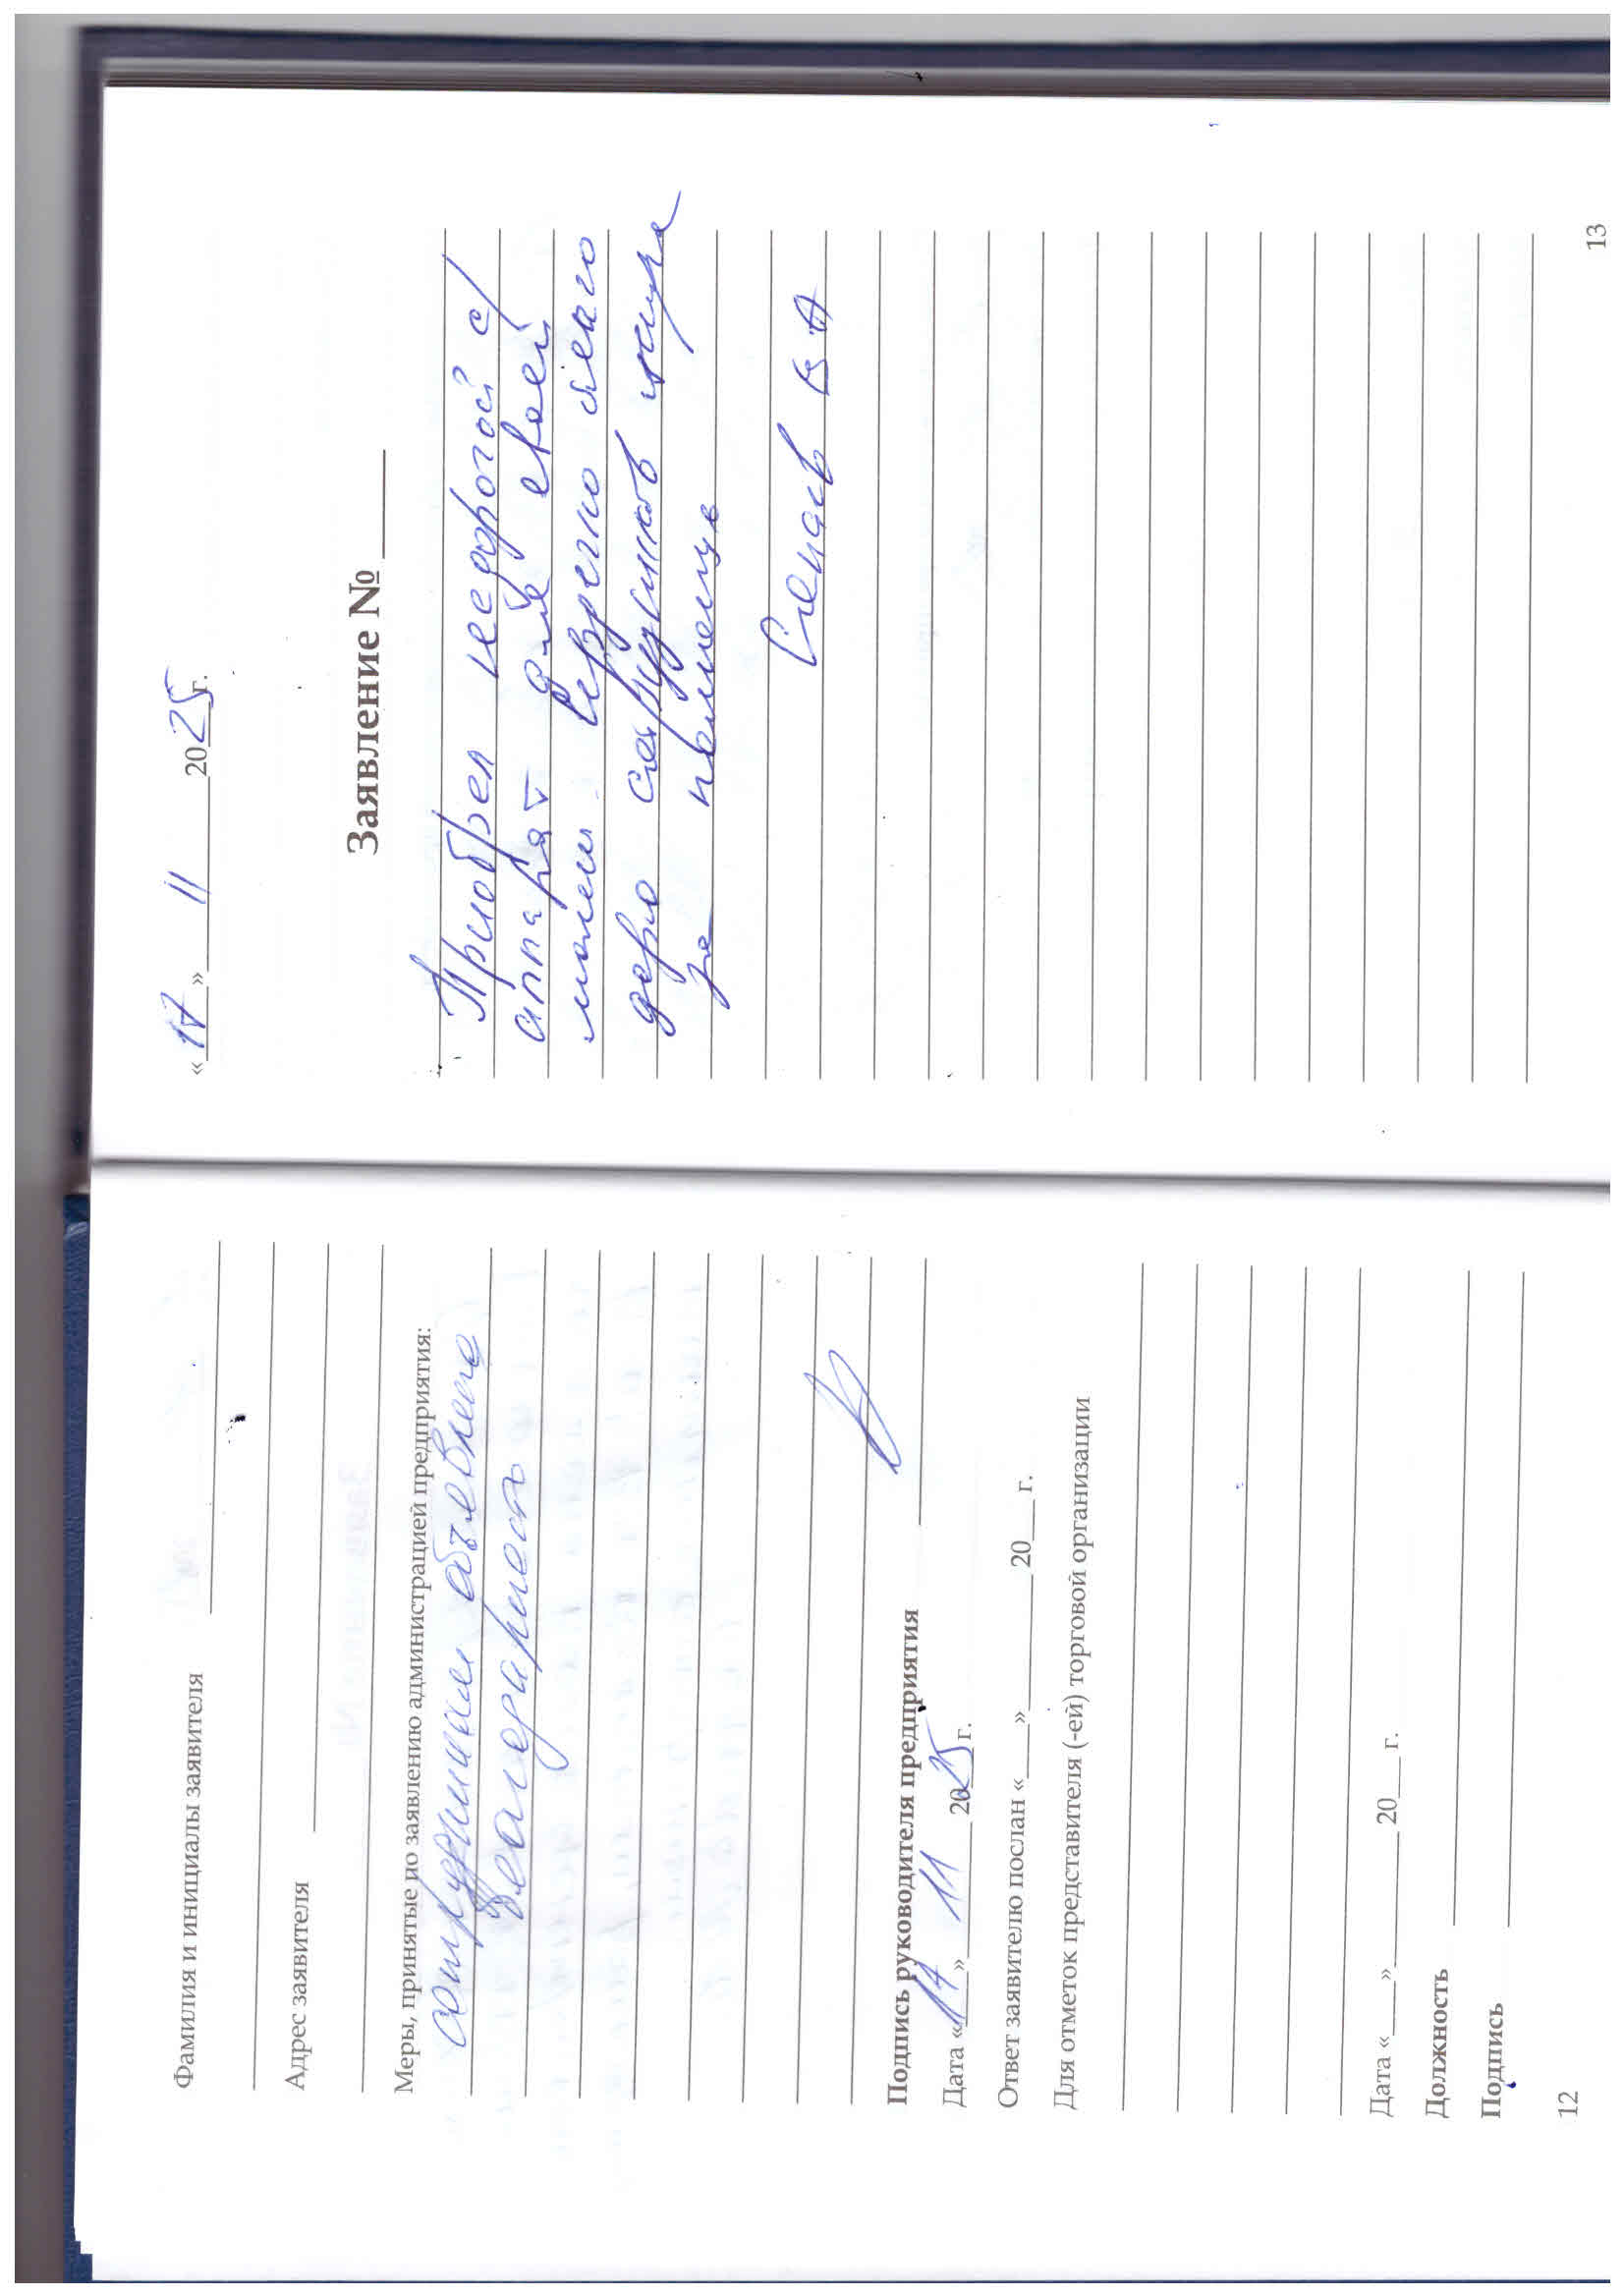 Фамилия и инициалы заявителя
Адрес заявителя
Меры, принятые по заявлению администрацией предприятия:
сотрудникам объявлено
благодарность
Подпись руководителя предприятия
Дата «17» 11 2025 г.
Ответ заявителю послан «___» ______ 20__ г.
Для отметок представителя (-ей) торговой организации
Дата «___» ______ 20__ г.
Должность
Подпись
12
«17» 11 2025 г.
Заявление № ____
Приобрел недорогой с/
аппарат для своей
мамы. Сердечно благо
дарю сотрудников
за
Спасов В А
13